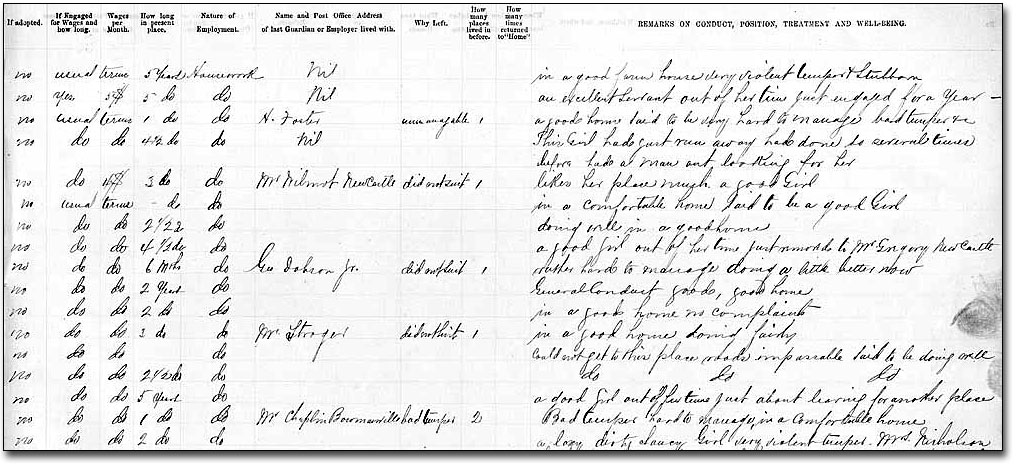 If adopted. If Engaged for Wages and how long. Wages per Month. How long in present place. Nature of Employment. Name and Post Office Address of last Guardian or Employer lived with. Why Left. How many places lived in before. How many times returned to "Home" REMARKS ON CONDUCT, POSITION, TREATMENT AND WELL-BEING.
no usual terms 5 Years Housework Nil in a good farm house very violent temper & Stubborn
no Yes 5$ 5 do do Nil an excellent Servant out of her time just engaged for a Year —
no usual terms 1 do do H. Foster unmanagable 1 a good home Said to be very hard to manage bad temper &c
no do do 4½ do do Nil This Girl had just run away had done so several times
before had a man out looking for her
no do 3 do do Mr Wilmot NewCastle did not suit 1 likes her place much a good Girl
no usual terms - do do in a comfortable home Said to be a good Girl
no do do do doing well in a good home
no do do 4½ do do a good girl out of her time just removed to Mr Gregory NewCastle
no do do 6 Mths do Geo Dobson Jr. did not suit 1 rather hard to manage doing a little better now
no do do 2 Years do General Conduct good, good home
no do do 2 do do in a good home no complaints
no do do 3 do do Mr did not suit 1 in a good home doing fairly
no do do do Could not get to this place roads impassable Said to be doing well
no do do 2½ do do do do do
no do do 5 Years do a good Girl out of her time just about leaving for another place
no do do 1 do do Mr Chaplin Bowmanville bad temper 2 Bad temper hard to manage, in a Comfortable home
no do do 2 do do a lazy dirty Saucy Girl very violent temper. Mrs. Nicholson